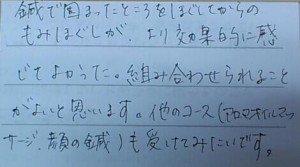 鍼で固まったところをほぐしてからの
もみほぐしが、より効果的に感
じてよかった。組み合わせられること
がよいと思います。他のコース(アロマオイルマッ
サージ、顔の鍼)も受けてみたいです。